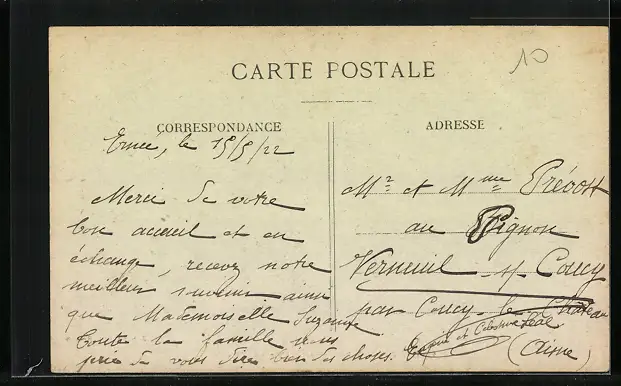 10
CARTE POSTALE
CORRESPONDANCE
Ernée, le 15/9/22
Merci de votre
bon accueil et en
échange, recevez notre
meilleur souvenir ainsi
que Mademoiselle Suzanne
Toute la famille vous
prie de vous dire bien des choses.
ADRESSE
Mr et Mme Prévost
au Pignon
Verneuil s/ Coucy
par Coucy-le-Château
et
(Aisne)